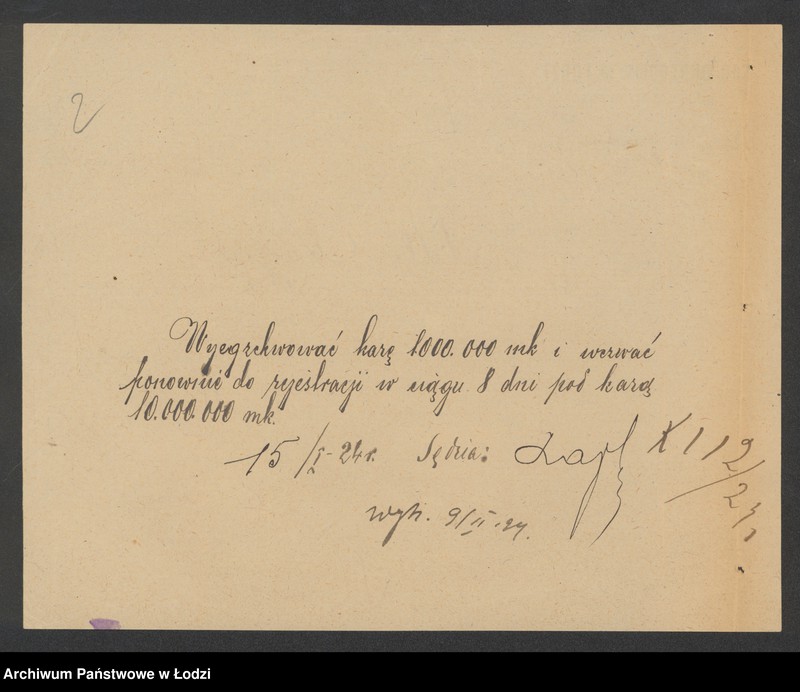 2
Wyegzekwować karę 1000.000 mk i wezwać
ponownie do rejestracji w ciągu 8 dni pod karą
10.000.000 mk.
15/I-24r. Sędzia: X 1112/23
wyk. 9/II.24.
Archiwum Państwowe w Łodzi